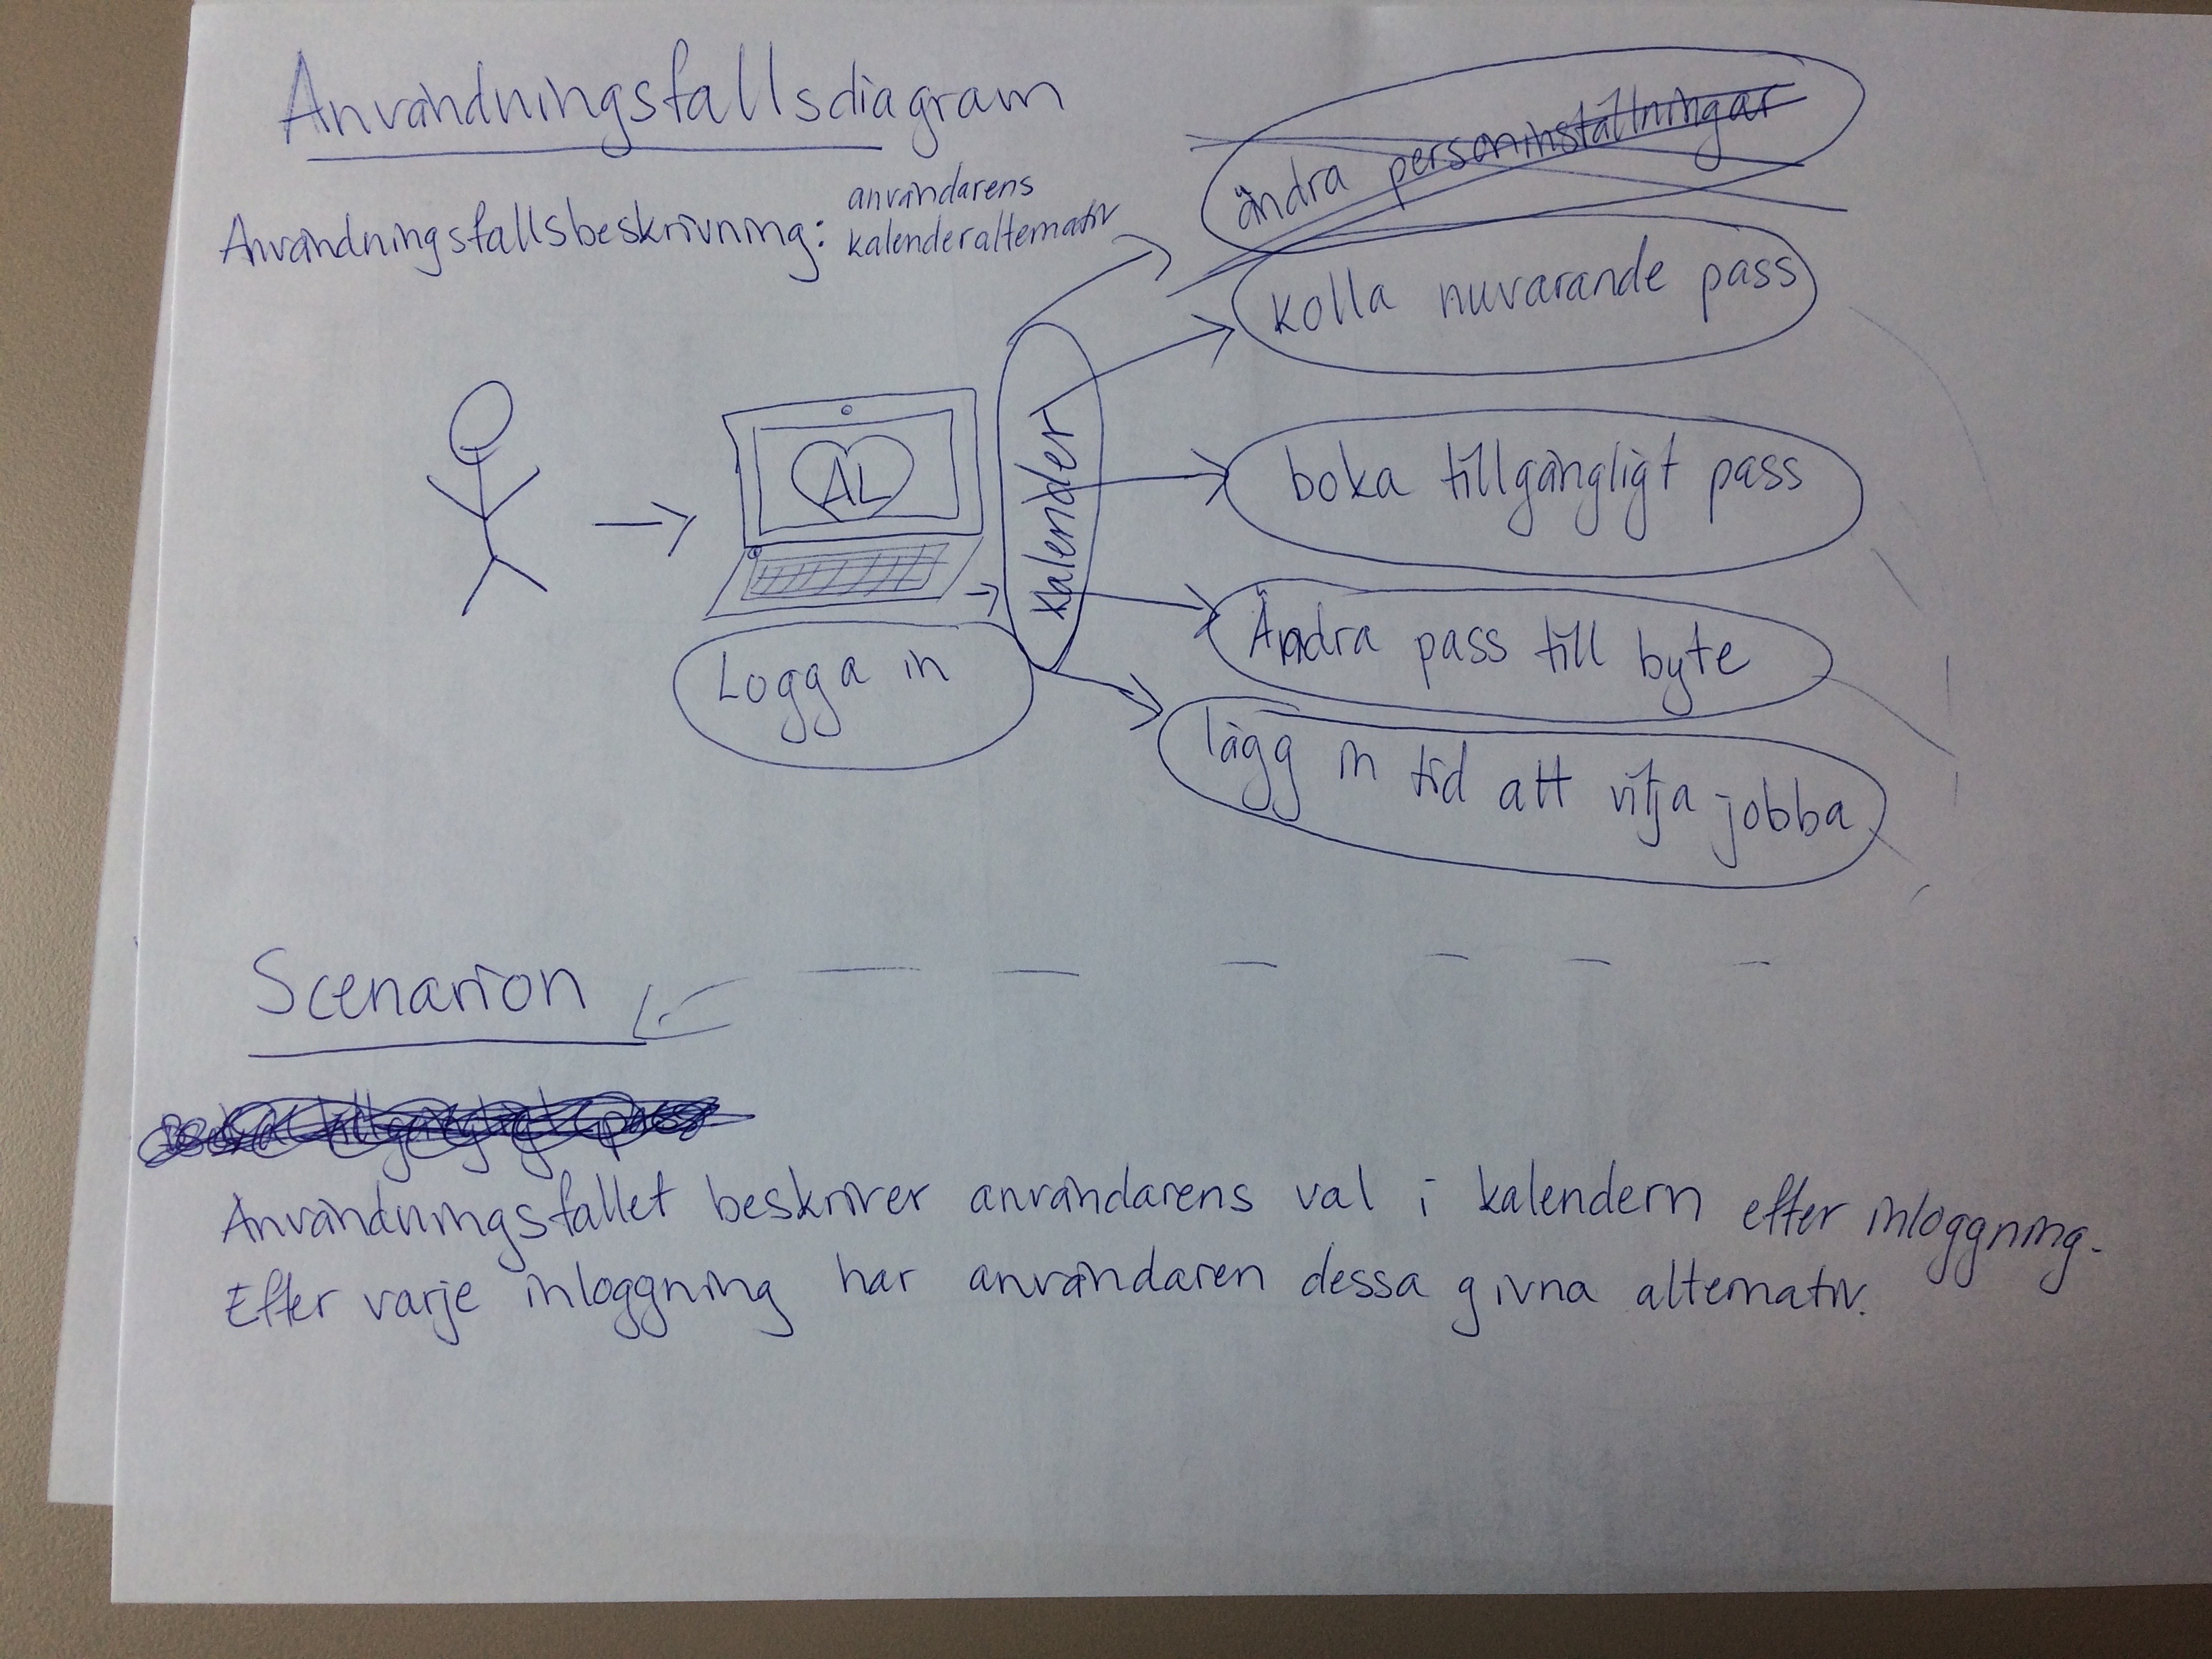 Användningsfallsdiagram
Användningsfallsbeskrivning: användarens
kalenderalternativ
ändra personinställningar
kolla nuvarande pass
AL
kalender
boka tillgängligt pass
Logga in
Ändra pass till byte
lägg in tid att vilja jobba
Scenarion
boka tillgängligt pass
Användningsfallet beskriver användarens val i kalendern efter inloggning.
Efter varje inloggning har användaren dessa givna alternativ.